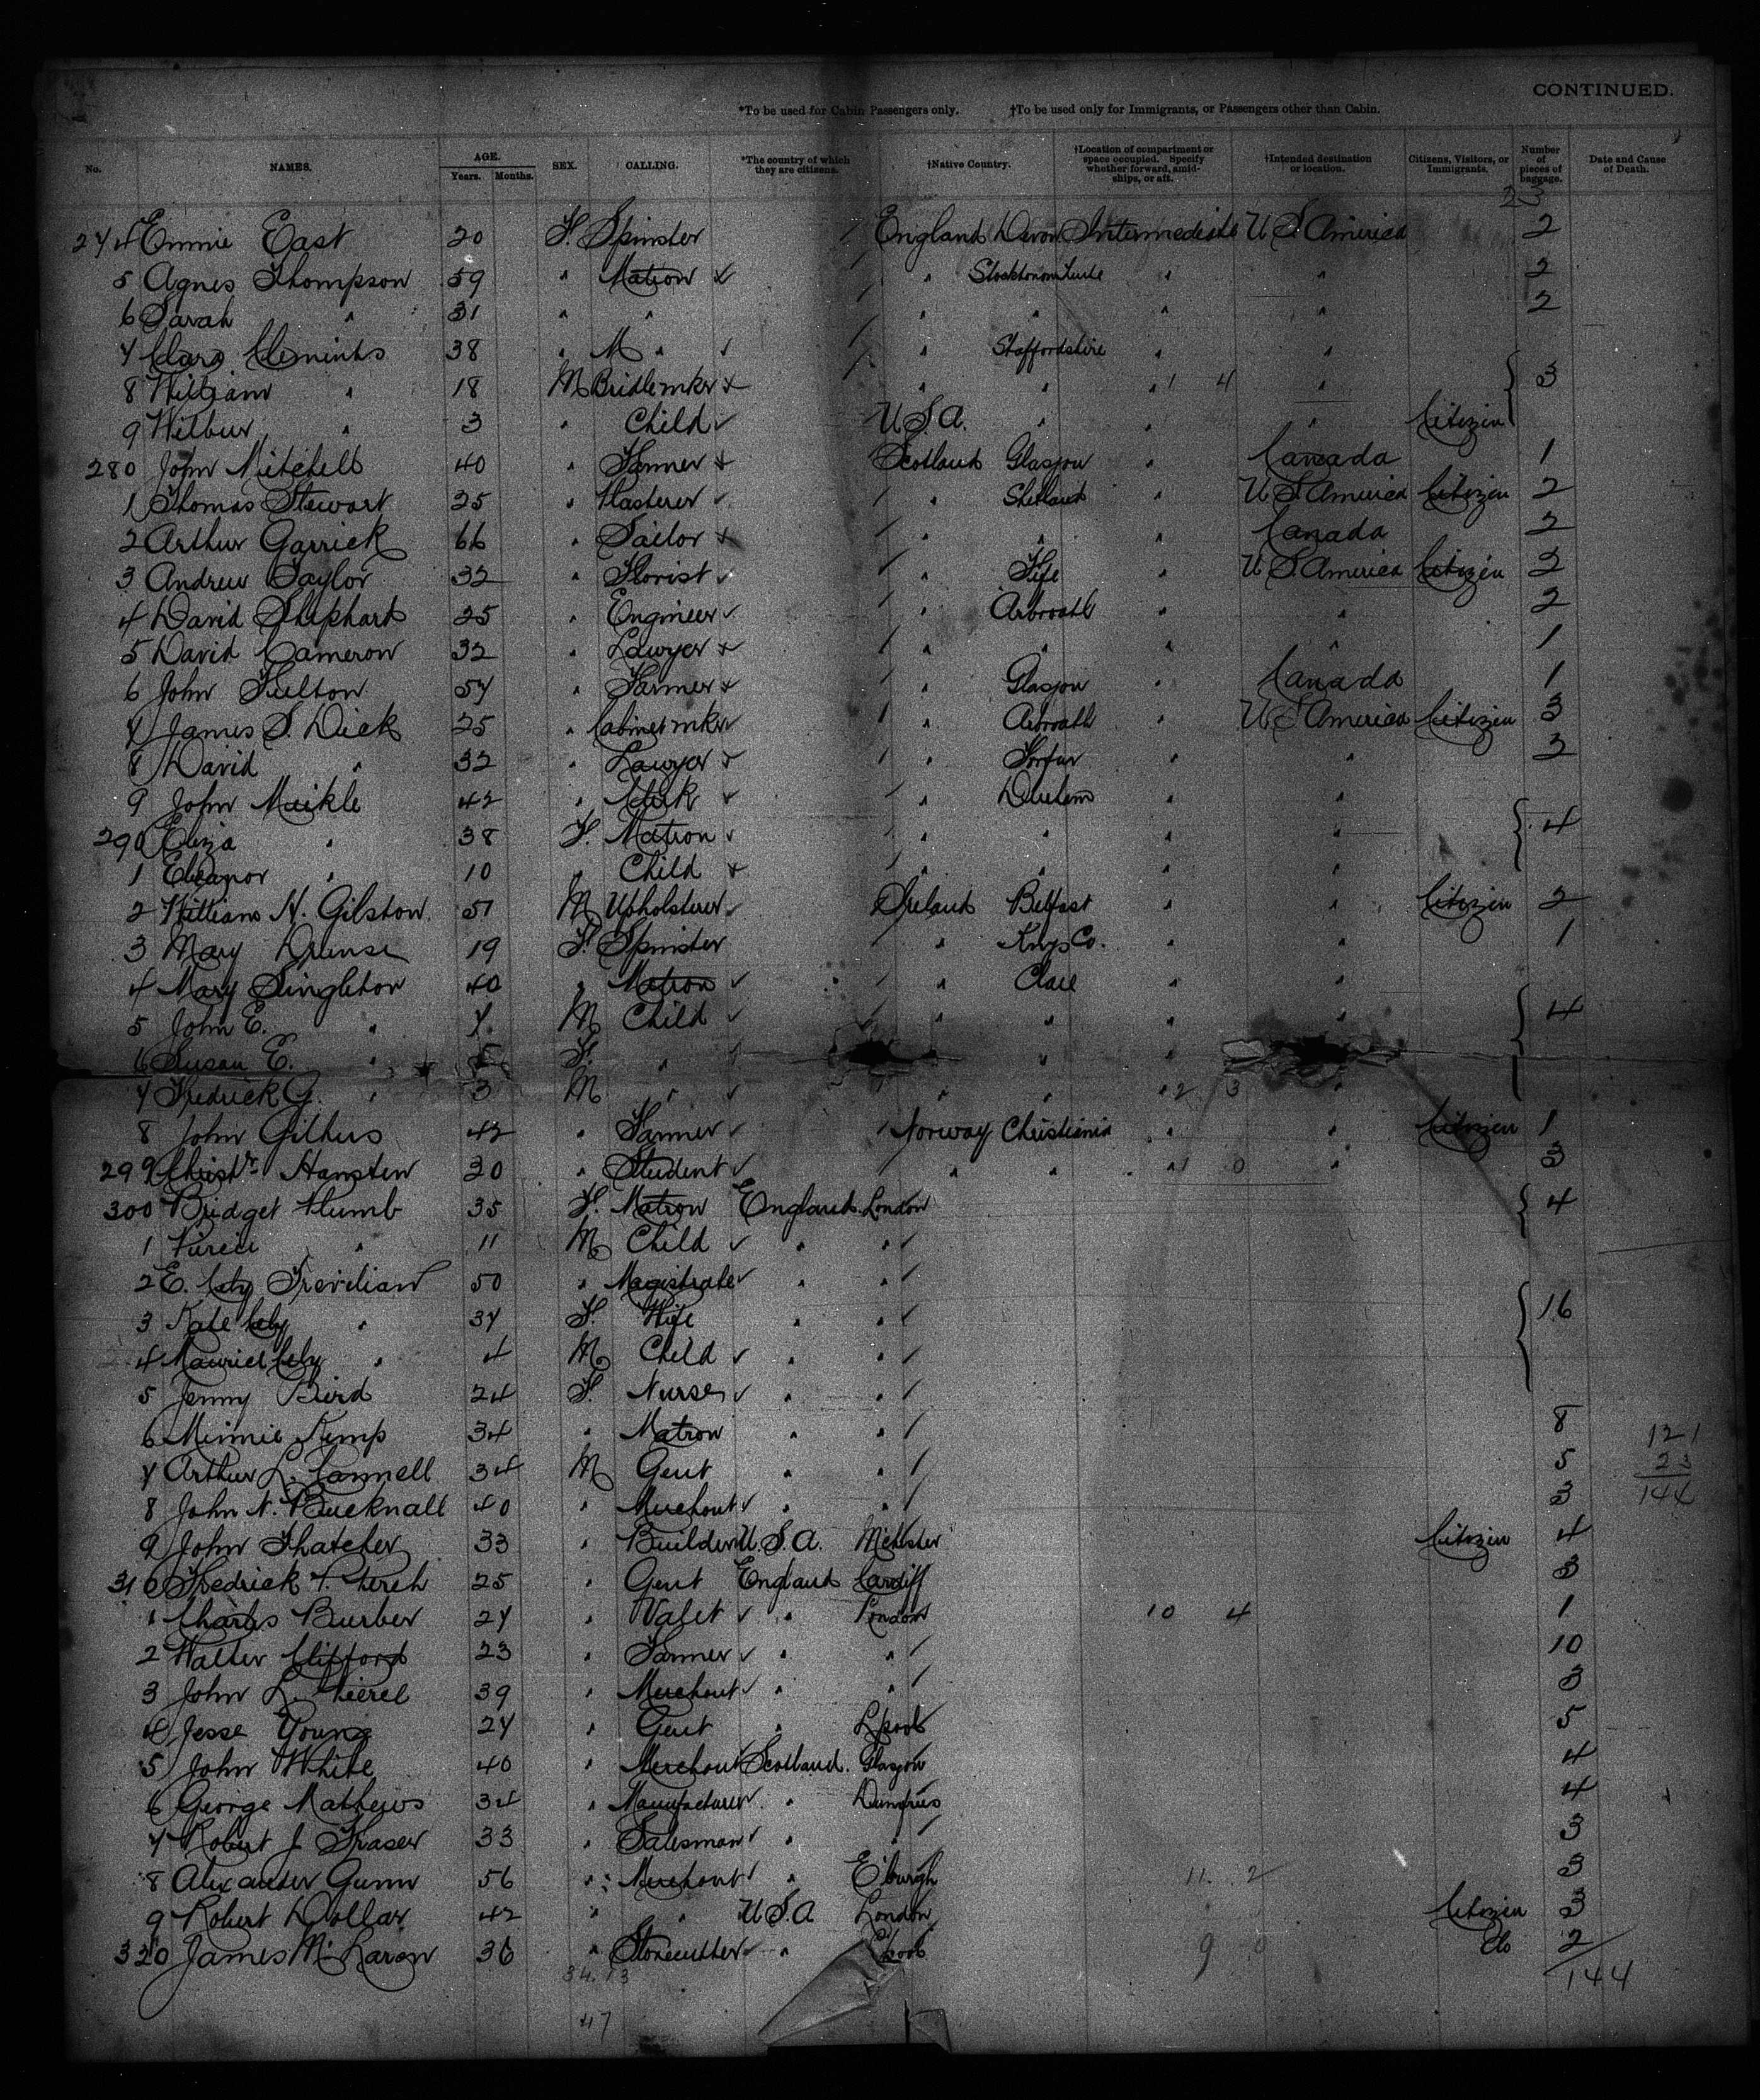 CONTINUED.
*To be used for Cabin Passengers only. †To be used only for Immigrants, or Passengers other than Cabin.
No. NAMES. AGE. Years. Months. SEX. CALLING. *The country of which they are citizens. †Native Country. †Location of compartment or space occupied. Specify whether forward, amidships, or aft. †Intended destination or location. Citizens, Visitors, or Immigrants. Number of pieces of baggage. Date and Cause of Death.
23
274 Emmie East 20 F. Spinster England Devon Intermediate U S America 2
5 Agnes Thompson 59 " Matron " Stockton on " " 2
6 Sarah " 31 " " " " " " 2
7 Clara Clements 38 " M " " Staffordshire " "
8 William " 18 M Bridlemkr " " " 1 4 " 3
9 Wilbur " 3 " Child U.S.A. " " " Citizen
280 John Mitchell 40 " Farmer Scotland Glasgow " Canada 1
1 Thomas Stewart 25 " Plasterer " Shetland " U S America Citizen 2
2 Arthur Garrick 66 " Sailor " " " Canada 2
3 Andrew Taylor 32 " Florist " Fife " U S America Citizen 2
4 David Shephard 25 " Engineer " Arbroath " " 2
5 David Cameron 32 " Lawyer " " " " 1
6 John Fulton 57 " Farmer " Glasgow " Canada 1
7 James S. Dick 25 " Cabinetmkr " Arbroath " U S America Citizen 3
8 David " 32 " Lawyer " Forfar " " 2
9 John Meikle 42 " Clerk " " "
290 Eliza " 38 F. Matron " " " " 4
1 Eleanor " 10 " Child " " " "
2 William H. Gilston 51 M Upholsterer Ireland Belfast " " Citizen 2
3 Mary 19 F. Spinster " Kings Co. " " 1
4 Mary Singleton 40 " Matron " Clare " "
5 John E. " 7 M Child " " " " 4
6 Susan E. " 5 F. " " "
7 Fredrick G. " 3 M " " " " 2 3 "
8 John Gilkers 42 " Farmer Norway Christiania " " Citizen 1
299 Christr. Hansten 30 " Student " " " 1 0 " 3
300 Bridget Plumb 35 F. Matron England London 4
1 " 11 M Child " "
2 E. Cely Trevilian 50 " Magistrate " "
3 Kate Cely " 37 F. Wife " " 16
4 Maurice Cely " 4 M Child " "
5 Jenny Bird 24 F. Nurse " "
6 Minnie Kemp 34 " Matron " " 8 121
7 Arthur L. Cannell 34 M Gent " " 5 23
8 John N. Bucknall 40 " Merchant " " 3 144
9 John Thatcher 33 " Builder U.S.A. Citizen 4
310 Fredrick 25 " Gent England Cardiff 3
1 Charles Burber 27 " Valet " London 10 4 1
2 Walter Clifford 23 " Farmer " " 10
3 John L. 39 " Merchant " " 3
4 Jesse Young 27 " Gent " Lpool 5
5 John White 40 " Merchant Scotland. Glasgow 4
6 George Mathews 34 " Manufacturer " Dumfries 4
7 Robert J Fraser 33 " Salesman " " 3
8 Alexander Gunn 56 " Merchant " E'burgh 11. 2 3
9 Robert Dollar 42 " " U S.A London Citizen 3
320 James 36 " Stonecutter " Lpool 9 0 do 2
34. 13 144
47